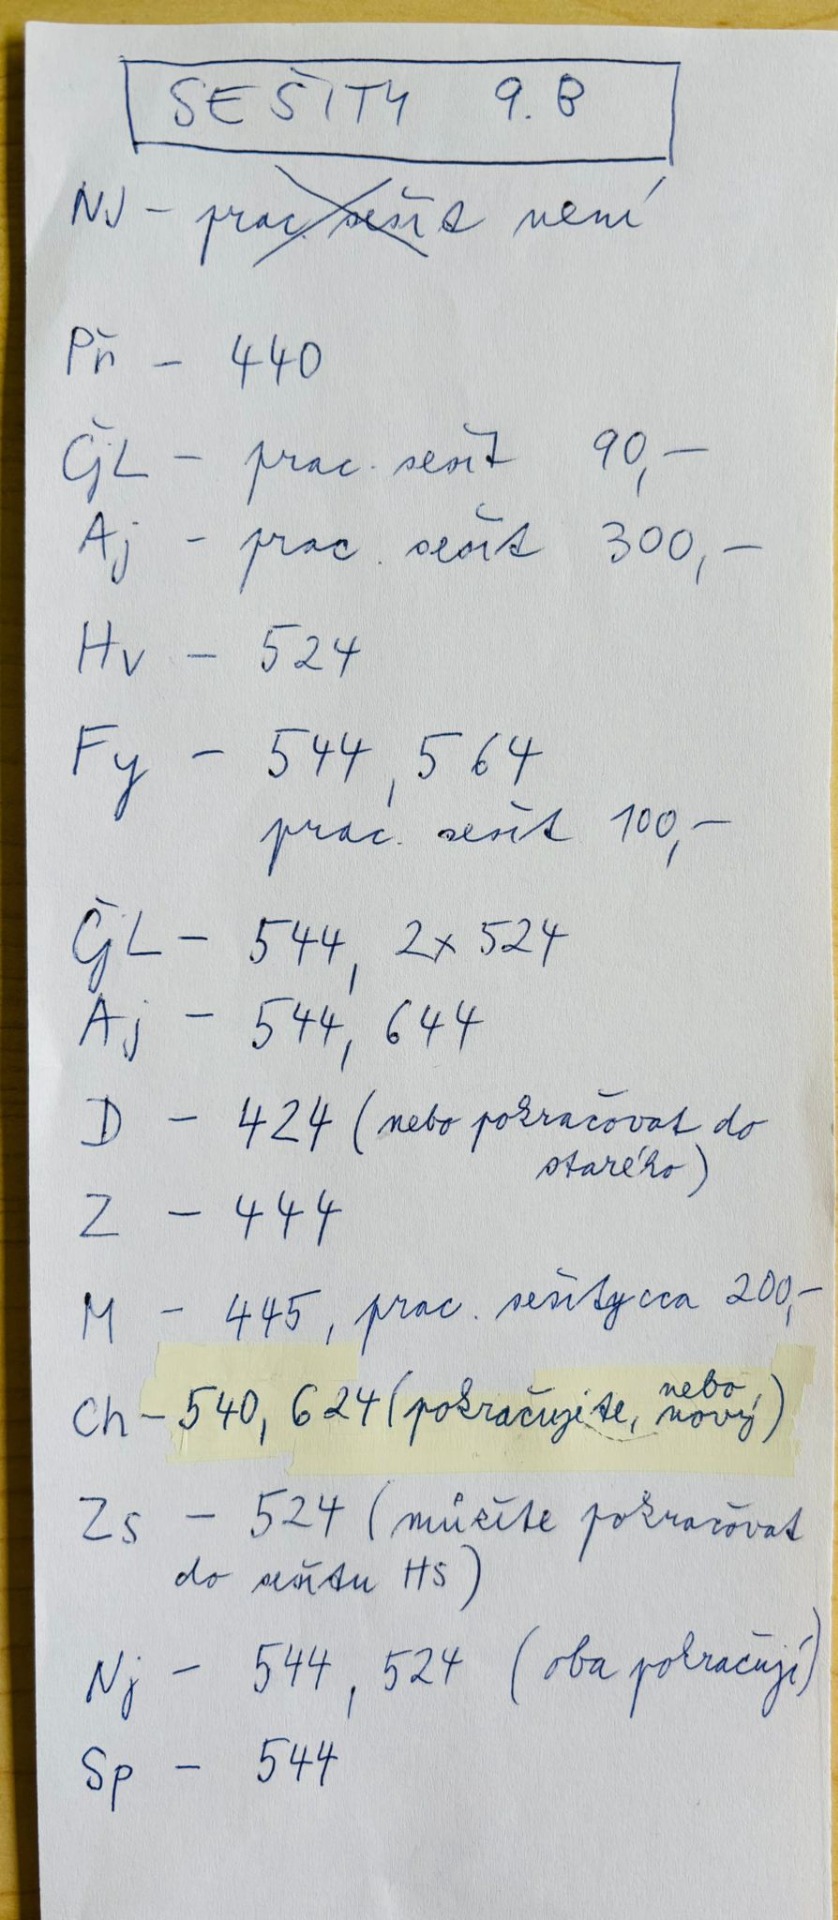 SEŠITY 9.B
NJ - prac. sešit není
Př - 440
ČjL - prac. sešit 90,-
Aj - prac. sešit 300,-
Hv - 524
Fy - 544, 564
prac. sešit 100,-
ČjL - 544, 2x 524
Aj - 544, 644
D - 424 (nebo pokračovat do
starého)
Z - 444
M - 445, prac. sešity cca 200,-
Ch - 540, 624 (pokračujete, nebo nový)
Zs - 524 (můžete pokračovat
do sešitu HS)
Nj - 544, 524 (oba pokračují)
Sp - 544